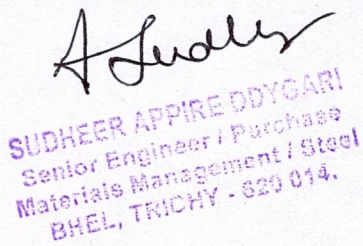 A Sudheer
SUDHEER APPIRE DDYGARI
Senior Engineer / Purchase
Materials Management / Steel
BHEL, TRICHY - 620 014.